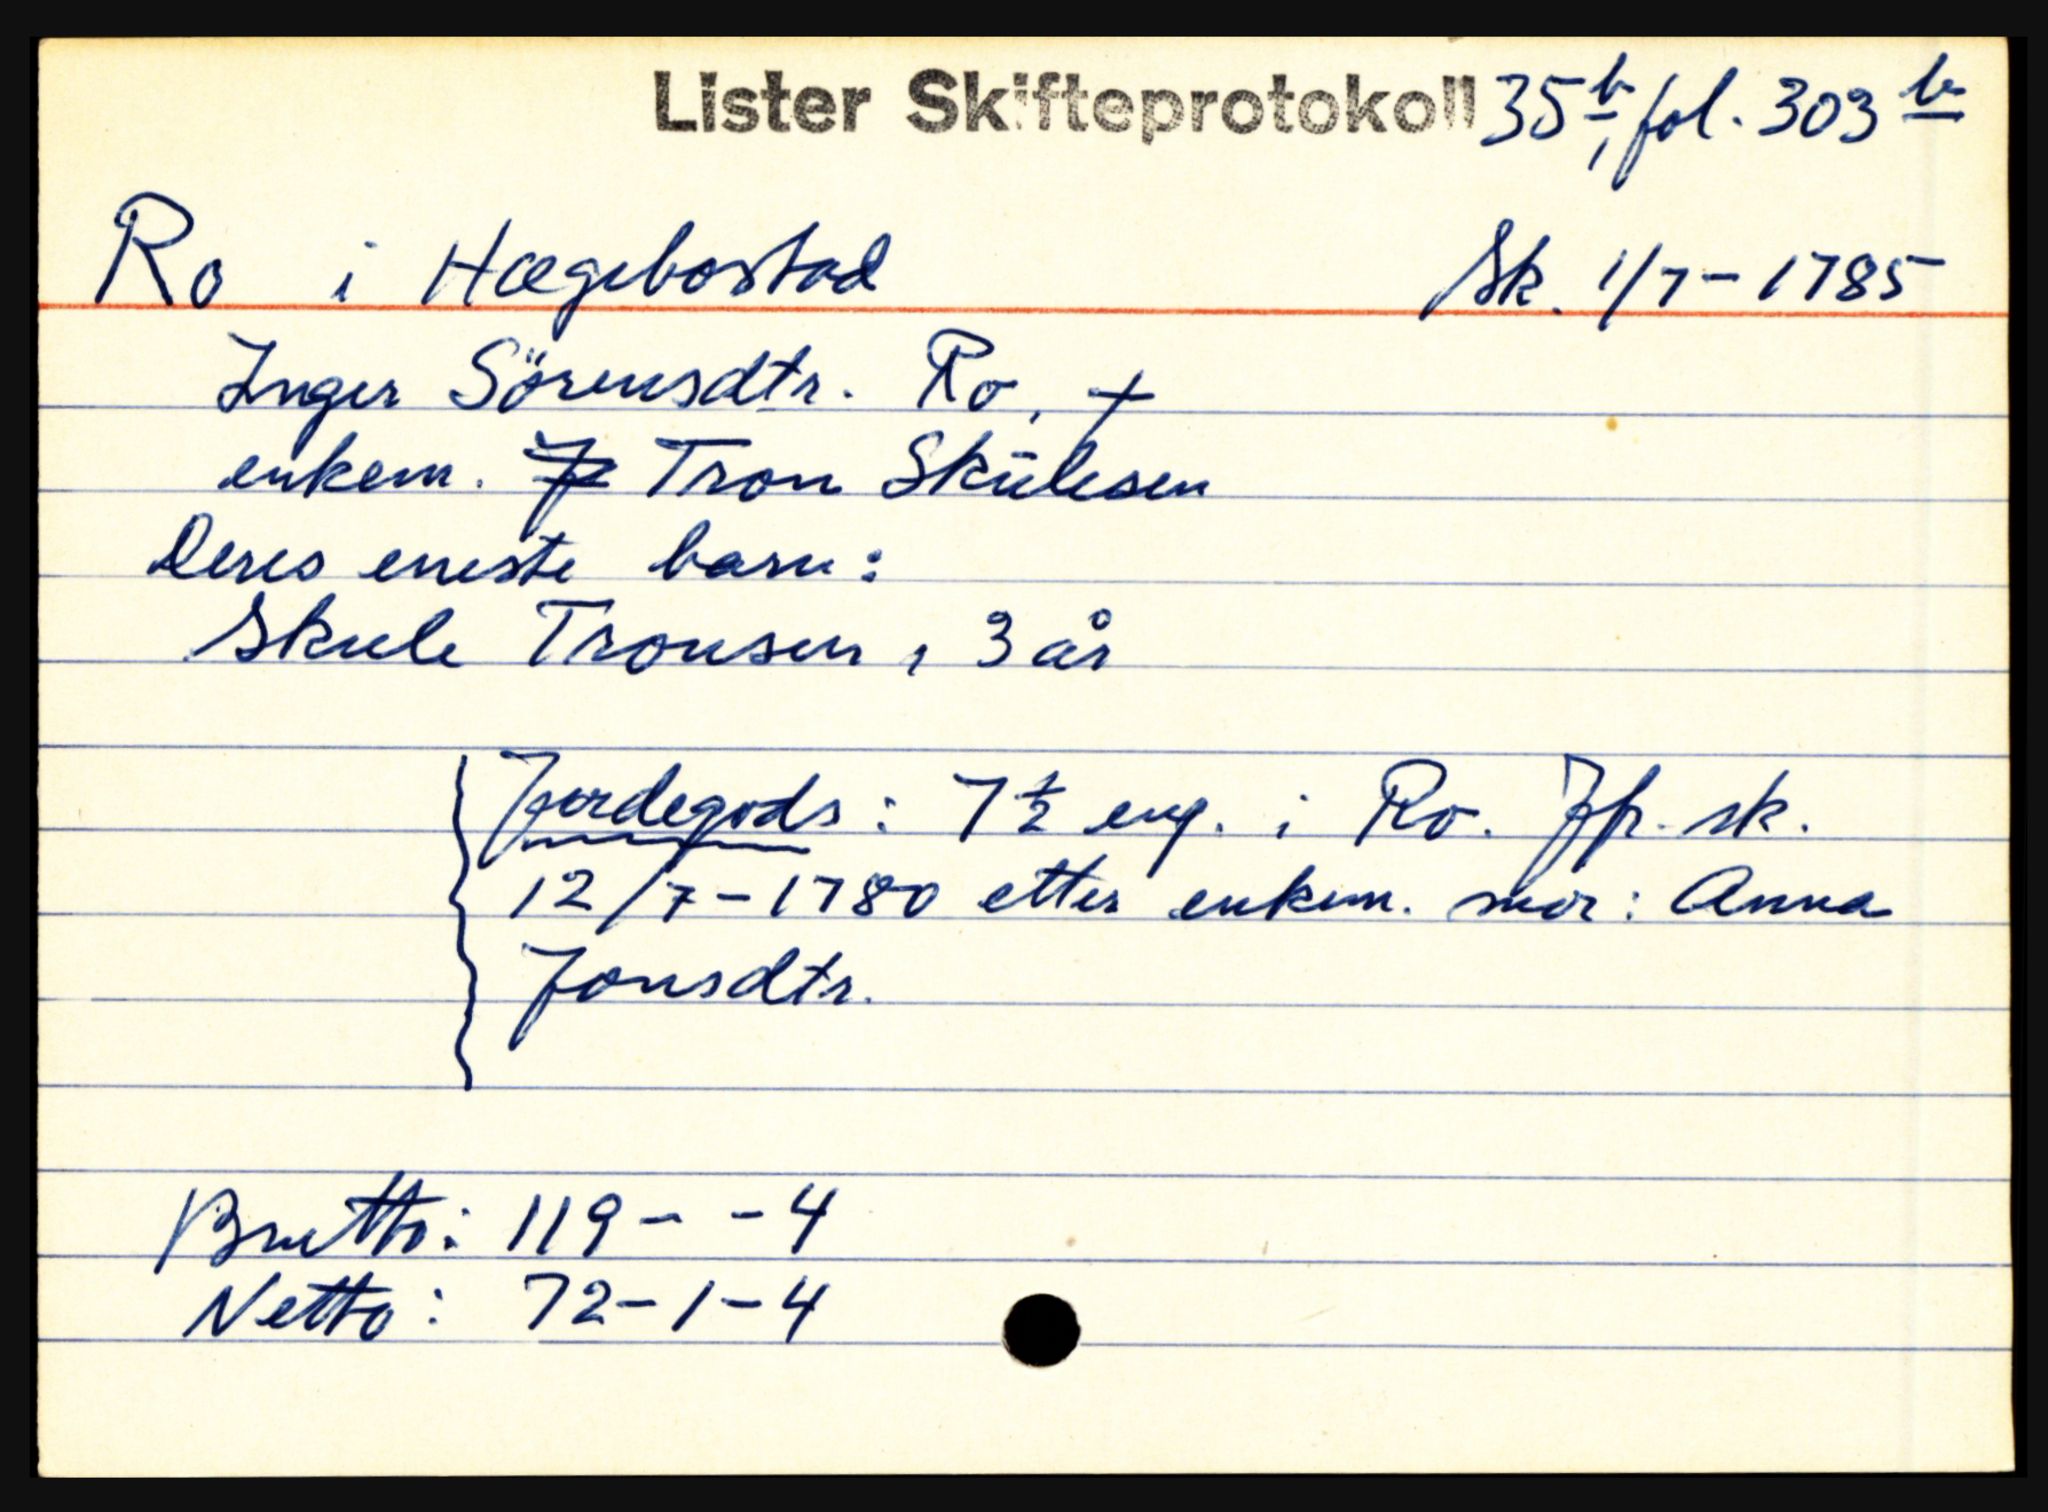 Lister Skifteprotokoll 35b, fol. 303 b
Ro i Hægebostad Sk. 1/7-1785
Inger Sörensdtr. Ro, +
enkem. Tron Skülesen
Deres eneste barn:
Skule Tronsen, 3 år
Jordegods: 7 1/2 eng. i Ro. Jfr. sk.
12/7-1780 etter enkem. mor: Anna
Jonsdtr.
Brutto: 119- -4
Netto: 72-1-4